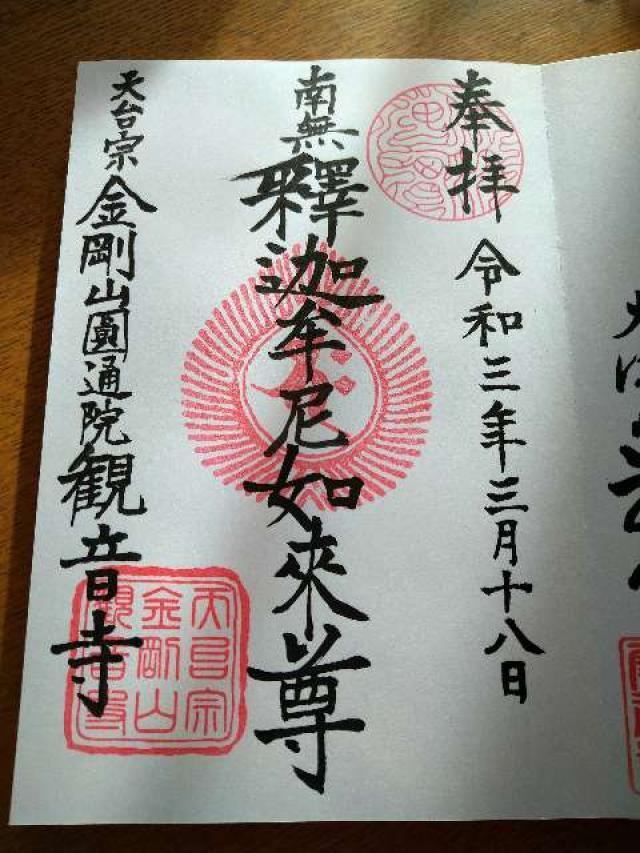 奉拝
令和三年三月十八日
南無
釋迦牟尼如來尊
天台宗 金剛山圓通院觀音寺
天台宗
金剛山
觀音寺